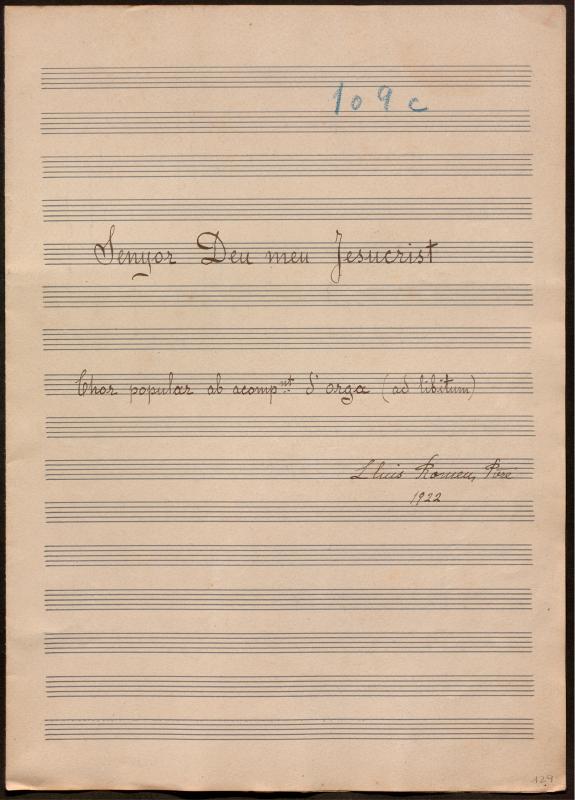 109 c
Senyor Deu meu Jesucrist
Chor popular ab acompnt d'orga (ad libitum)
Lluis Romeu, Pvre
1922
129